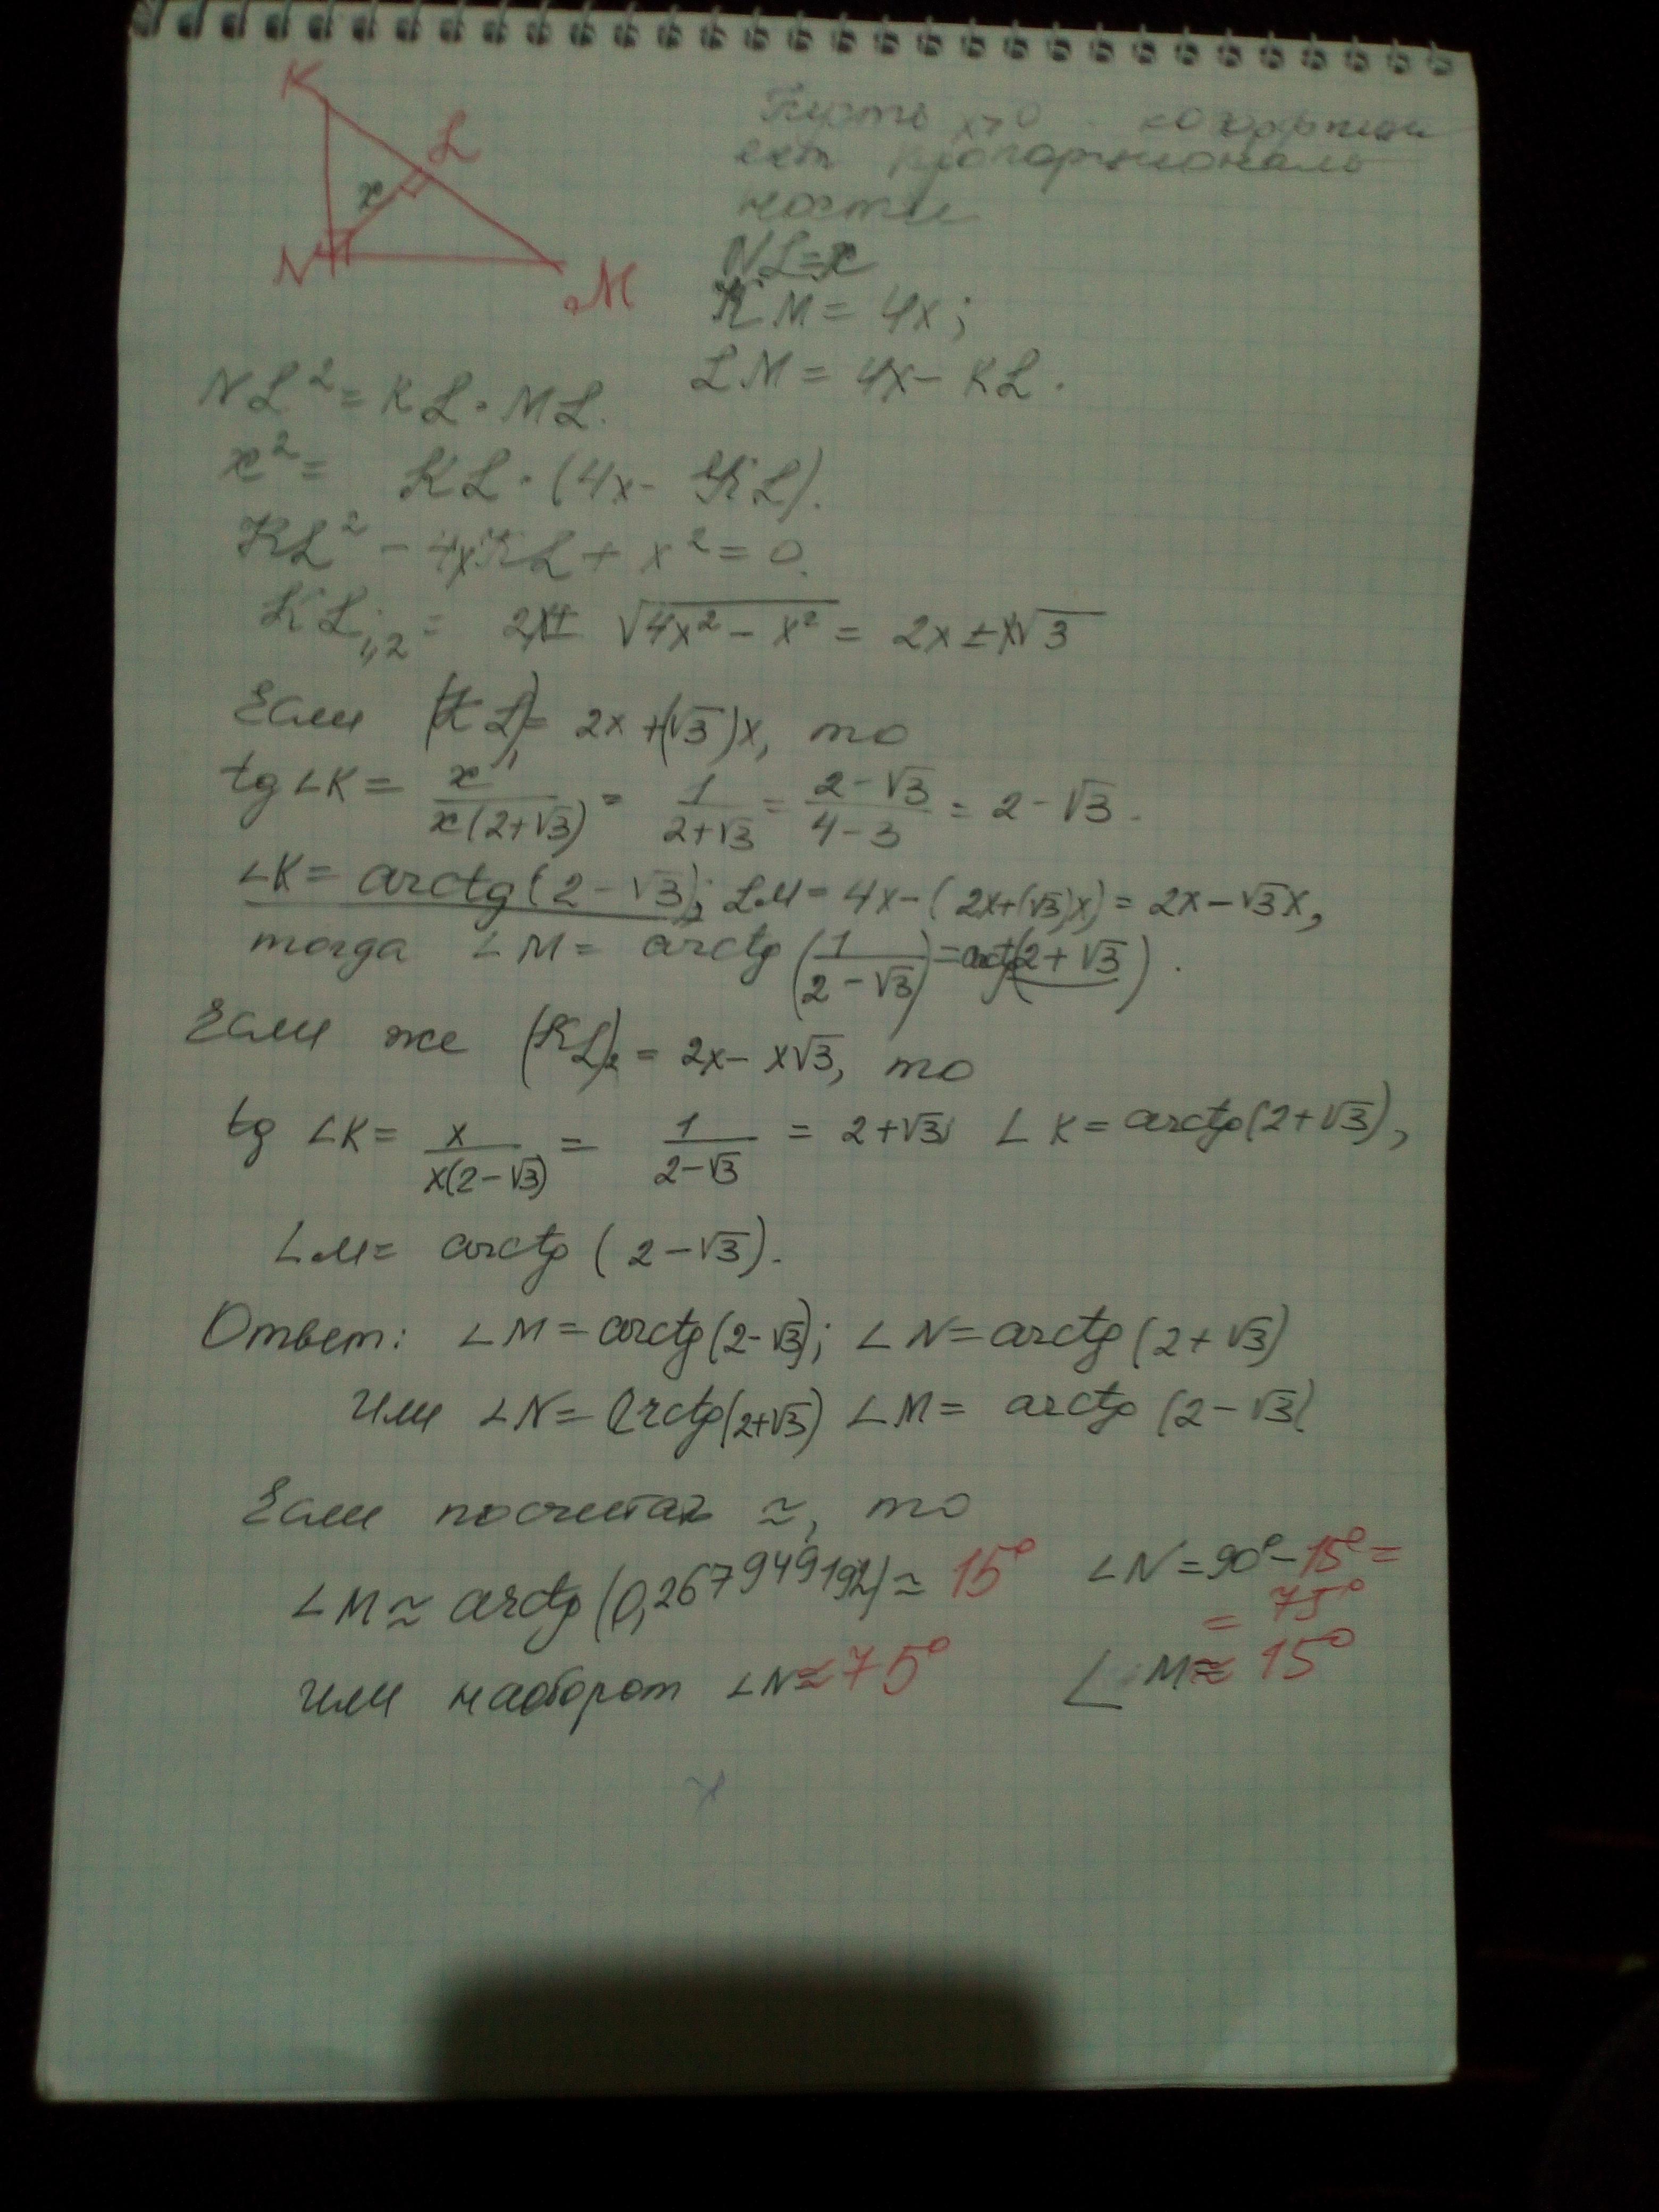 K
L
x
N
M
Пусть x>0 коэффици
ент пропорциональ
ности
NL=x
KM = 4x;
LM = 4x - KL.
NL² = KL · ML.
x² = KL · (4x - KL).
KL² - 4xKL + x² = 0.
KL₁,₂ = 2x ± √(4x² - x²) = 2x ± x√3
Если (KL)₁ = 2x + (√3)x, то
tg ∠K = x/(x(2+√3)) = 1/(2+√3) = (2-√3)/(4-3) = 2 - √3.
∠K = arctg(2 - √3); LM = 4x - (2x+(√3)x) = 2x - √3x,
тогда ∠M = arctg(1/(2-√3)) = arctg(2+√3).
Если же (KL)₂ = 2x - x√3, то
tg ∠K = x/(x(2-√3)) = 1/(2-√3) = 2+√3 ∠K = arctg(2+√3),
∠M = arctg (2 - √3).
Ответ: ∠M = arctg(2-√3); ∠N = arctg(2+√3)
или ∠N = arctg(2+√3) ∠M = arctg (2-√3)
Если посчитать ≈, то
∠M ≈ arctg(0,267949192) ≈ 15° ∠N = 90° - 15° =
= 75°
или наоборот ∠N ≈ 75° ∠M ≈ 15°